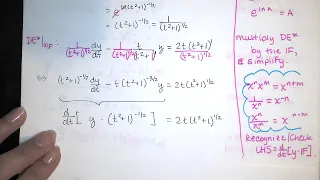 = e^{ln(t²+1)^{-1/2}}
= (t²+1)^{-1/2} = 1/(t²+1)^{1/2}
DE*|xIF: 1/(t²+1)^{1/2} dy/dt - t/(t²+1)^{1/2}(t²+1) y = 2t(t²+1)^1/(t²+1)^{1/2}
⇔ (t²+1)^{-1/2} dy/dt - t(t²+1)^{-3/2} y = 2t(t²+1)^{1/2}
d/dt [ y · (t²+1)^{-1/2} ] = 2t(t²+1)^{1/2}
e^{ln A} = A
multiply DE*
by the IF,
& simplify.
xⁿxᵐ = x^{n+m}
1/xⁿ = x^{-n}
xⁿ/xᵐ = x^{n-m}
Recognize/Check
LHS = d/dt[y·IF]